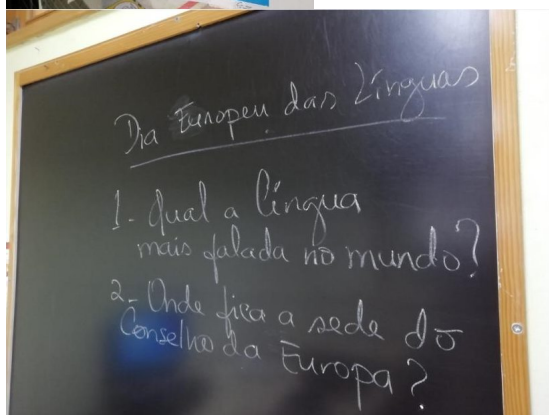 Dia Europeu das Línguas
1- Qual a língua
mais falada no mundo?
2- Onde fica a sede do
Conselho da Europa?